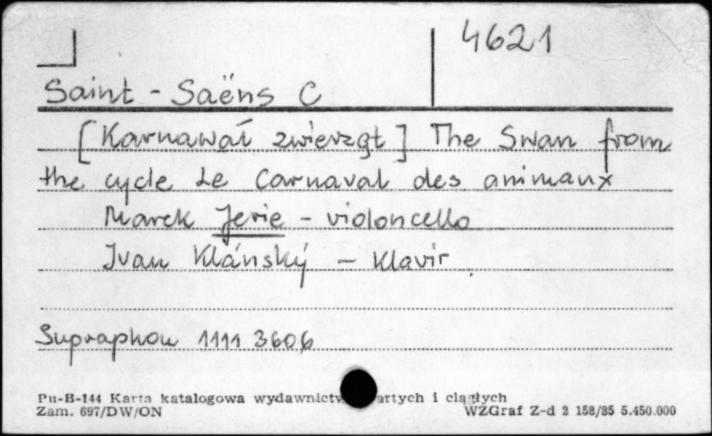 4621
Saint-Saëns C
[Karnawał zwierząt] The Swan from
the cycle Le Carnaval des animaux
Marek Jerie - violoncello
Ivan Klánský - Klavir
Supraphon 1111 3606
Pu-B-144 Karta katalogowa wydawnictw zwartych i ciągłych
Zam. 697/DW/ON WZGraf Z-d 2 158/85 5.450.000